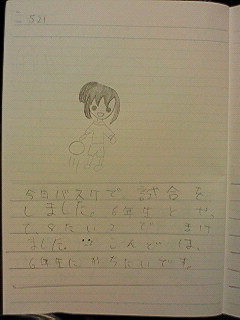 5/21
今日バスケで、試合を
しました。6年生とやっ
て、8たい2で まけ
ました。こんどは、
6年生にかちたいです。